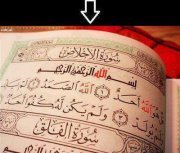 سُورَةُ الإِخْلَاصِ
بِسْمِ اللَّهِ الرَّحْمَنِ الرَّحِيمِ
هُوَ اللَّهُ أَحَدٌ ١ اللَّهُ الصَّمَدُ ٢ لَمْ
٣ وَلَمْ يَكُنْ لَهُ كُفُوًا أَحَدٌ
سُورَةُ الْفَلَقِ